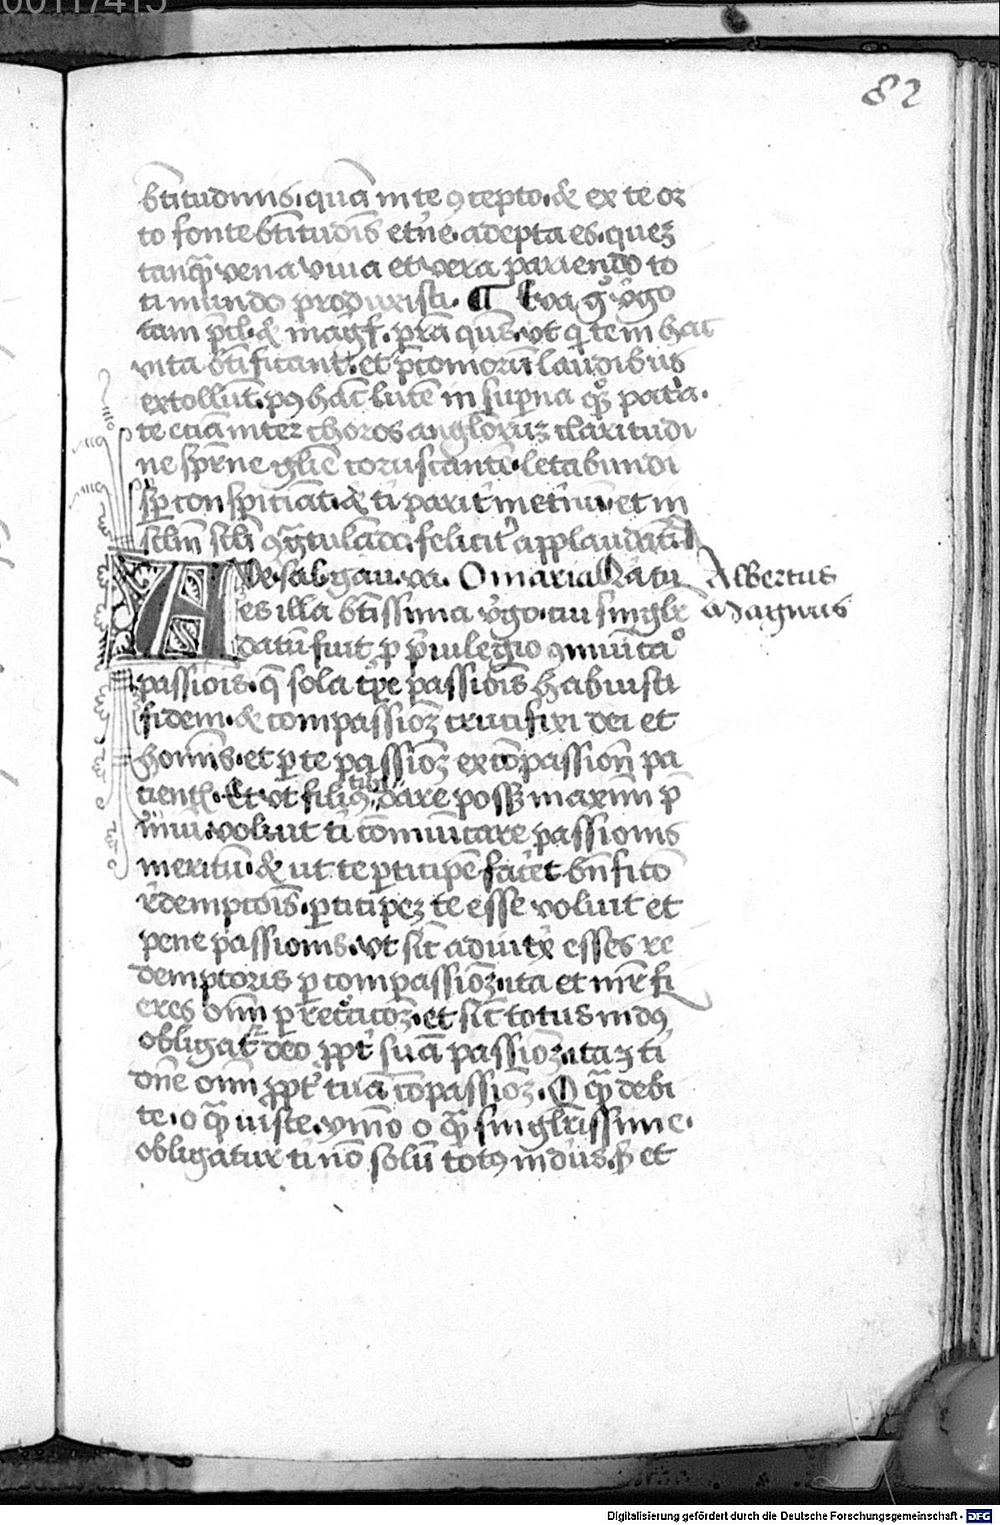 82
btitudinis. quā in te ↄcepto. & ex te or
to fonte btitudīs etne. adepta es. quez
tanqȝ vena viua et vera pariendo to
ti mundo produxisti. ¶ Eya gͦ vgo
tam & magf. prā qus. vt qi tem hac
vita btificant. et pconiorū laudibus
extollūt. pꝰ hac lucē in suprna patria.
te etiā inter choros angloruz claritudi
ne sprne glie coruscantē. letabundi
sp conspiciāt. & ti parit et in
sclm scli ↄgtulādo. felicit applaudāt. A
Ave sal gau. Maria tu
es illa btissima vgo. cui singlr
datū fuit p puilegio ↄmuīcaͦ
passiois. q sola tpe passiōis habuisti
fidem. & compassioȝ crucifixi dei et
homis. et p te passioȝ ex cōpassion pa
cient. Et vt filiꝰ tibi dare possȝ maximū p
mīu. voluit ti cōmuīcare passionis
meritū. & ut te pticipē facet bnficio
rdemptōis. pticipez te esse voluit et
pene passionis. vt sic adiutx esses re
demptoris p compassioȝ. ita et mr fi
eres oīm p recacioȝ. et sic totus mdꝰ
obligat deo ꝓpt suā passioȝ. ita ⁊ ti
dne oīm ꝓpt tuā cōpassioȝ. O qȝ debi
te. o qȝ iuste. ymo o qȝ singlrissime.
obligatur ti nō solū totꝰ mdus. et
Albertus
Magnus
Digitalisierung gefördert durch die Deutsche Forschungsgemeinschaft - DFG